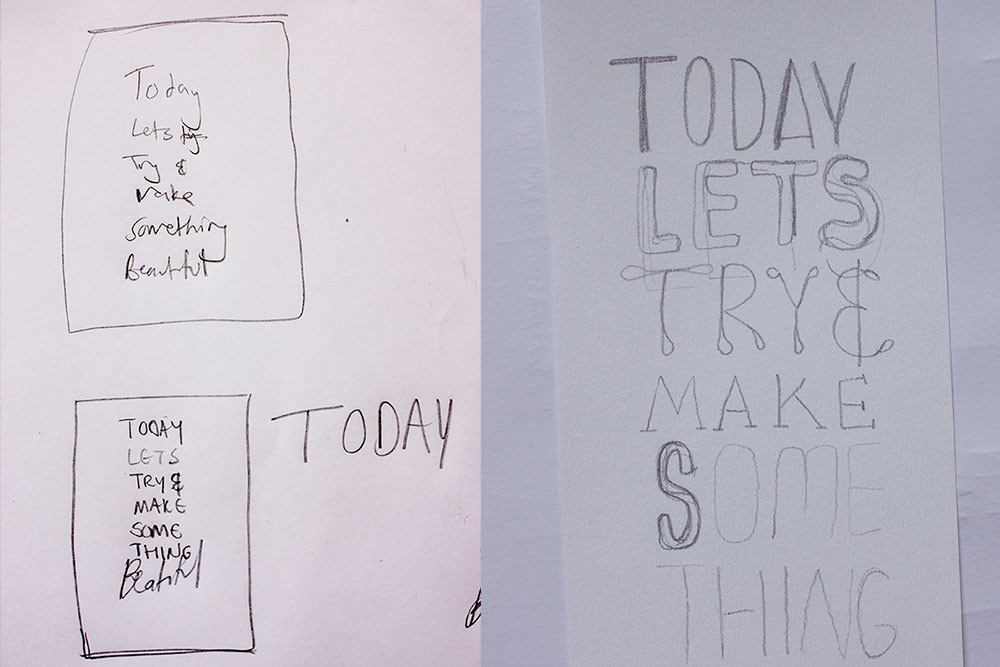 Today
Lets try
Try &
make
something
Beautiful
TODAY
LETS
TRY &
MAKE
SOME
THING
Beatiful
TODAY
TODAY
LETS
TRY &
MAKE
SOME
THING